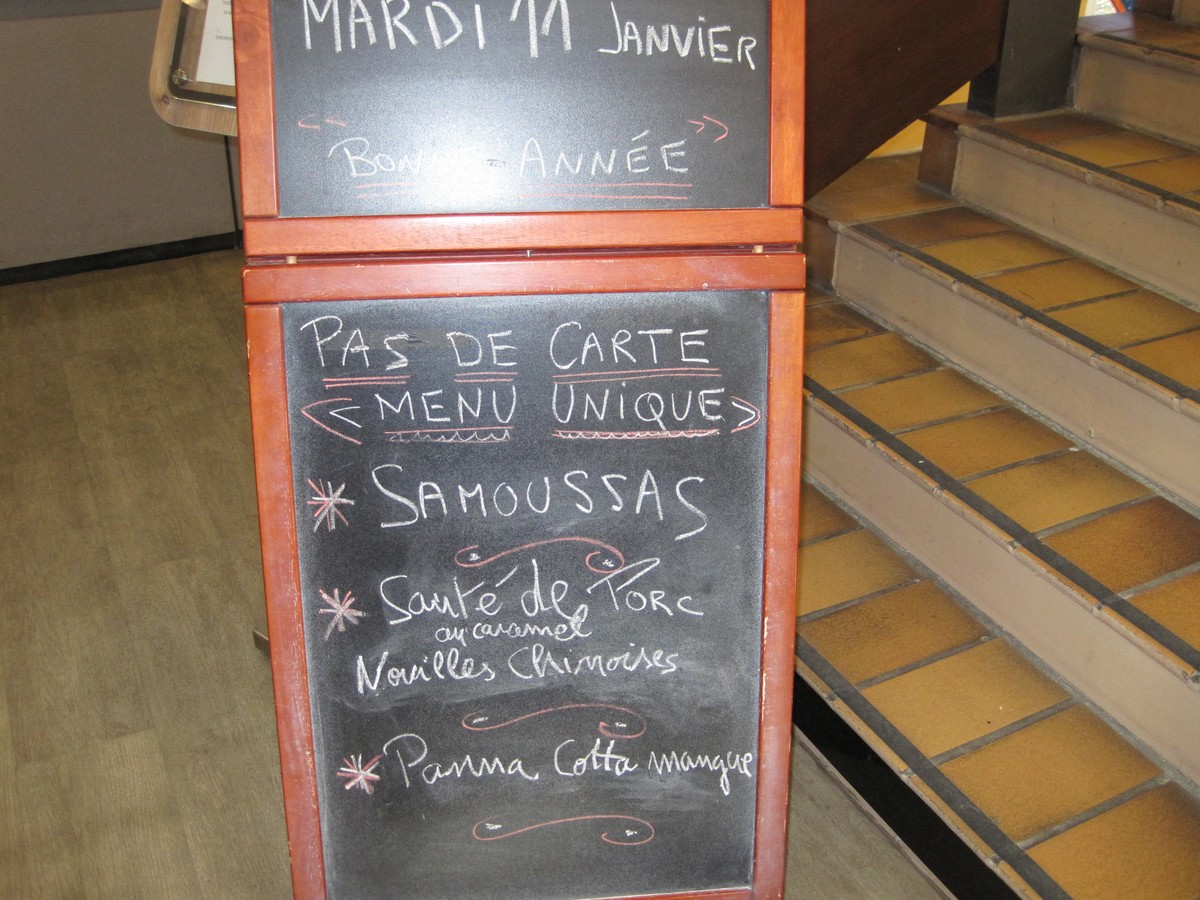 MARDI 11 JANVIER
<< >>
BONNE ANNÉE
PAS DE CARTE
<< MENU UNIQUE >>
* SAMOUSSAS
* Sauté de Porc
au caramel
Nouilles Chinoises
* Panna Cotta mangue